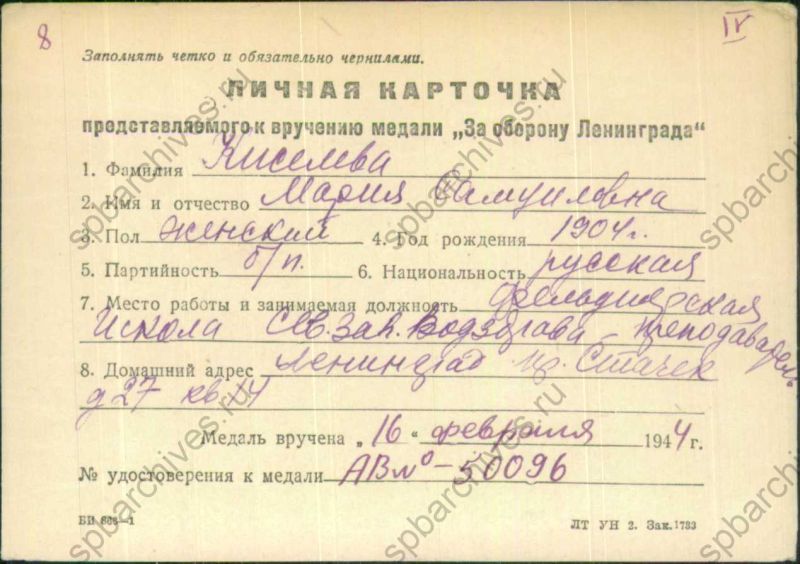 8
IV
Заполнять четко и обязательно чернилами.
ЛИЧНАЯ КАРТОЧКА
представляемого к вручению медали „За оборону Ленинграда“
1. Фамилия Киселева
2. Имя и отчество Мария Самуиловна
3. Пол женский 4. Год рождения 1904 г.
5. Партийность б/п. 6. Национальность русская
7. Место работы и занимаемая должность Фельдшерская
школа Сев. Зап. Водздрава - преподаватель
8. Домашний адрес Ленинград пр. Стачек
д 27 кв. 14
Медаль вручена „16“ февраля 1944 г.
№ удостоверения к медали АВ № - 50096
БИ 808—1
ЛТ УН 2. Зак. 1733
spbarchives.ru